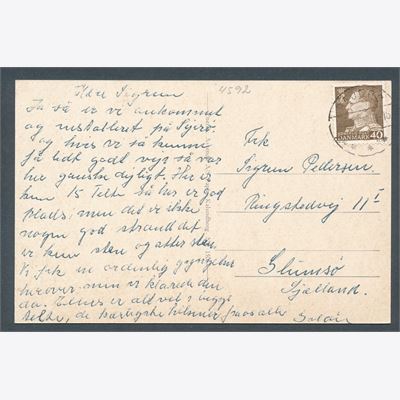 Kære Sigrun
Ja så er vi ankommet
og installeret på Sejrø.
og hvis vi så kunne
få lidt godt vejr så var
her ganske dejligt. Her er
kun 15 Telte så her er god
Plads, men det er ikke
nogen god strand det
er kun sten og atter sten.
Vi fik en ordenlig gyngetur
herover men vi klarede den
da. Ellers er alt vel i begge
telte, de kærligste hilsner fra os alle
4592
DANMARK
40
Frk
Sigrun Pedersen.
Ringstedvej 11 I
Glumsø
Sjælland.